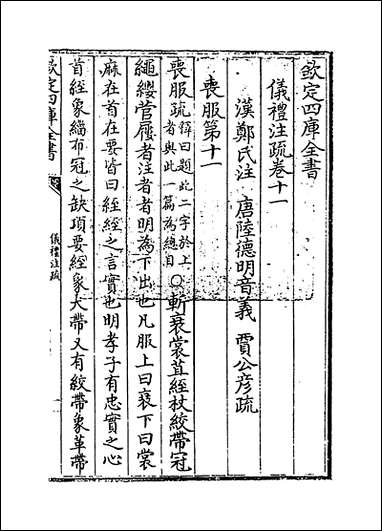 欽定四庫全書
儀禮注疏卷十一
漢鄭氏注 唐陸德明音義 賈公彥疏
喪服第十一
喪服疏釋曰題此二字於上者與此一篇為總目○斬衰裳苴絰杖絞帶冠
繩纓菅屨者注者者明為下出也凡服上曰衰下曰裳
麻在首在要皆曰絰絰之言實也明孝子有忠實之心
首絰象緇布冠之缺項要絰象大帶又有絞帶象革帶
欽定四庫全書
儀禮注疏
一